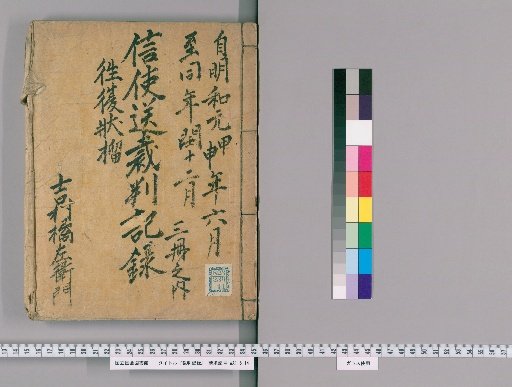 自明和元甲申年六月
至同年閏十二月
信使送裁判記録
三冊之内
往復状擂
吉村橘左衛門